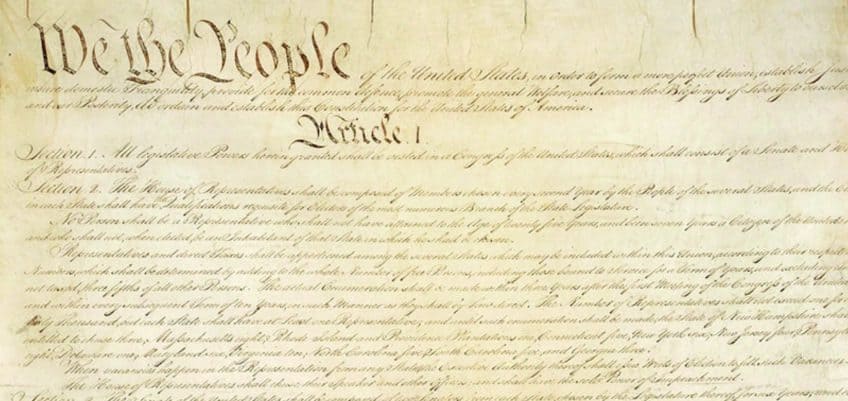 We the People of the United States, in Order to form a more perfect Union, establish Just
insure domestic Tranquility, provide for the common defence, promote the general Welfare, and secure the Blessings of Liberty to ourselve
and our Posterity, do ordain and establish this Constitution for the United States of America.
Article. I.
Section. 1. All legislative Powers herein granted shall be vested in a Congress of the United States, which shall consist of a Senate and
of Representatives.
Section. 2. The House of Representatives shall be composed of Members chosen every second Year by the People of the several States, and the
in each State shall have Qualifications requisite for Electors of the most numerous Branch of the State Legislature.
No Person shall be a Representative who shall not have attained to the Age of twenty five Years, and been seven Years a Citizen of the United
and who shall not, when elected, be an Inhabitant of that State in which he shall be chosen.
Representatives and direct Taxes shall be apportioned among the several States which may be included within this Union, according to their respect
Numbers, which shall be determined by adding to the whole Number of free Persons, including those bound to Service for a Term of Years, and excluding
not taxed, three fifths of all other Persons. The actual Enumeration shall be made within three Years after the first Meeting of the Congress of the United
and within every subsequent Term of ten Years, in such Manner as they shall by Law direct. The Number of Representatives shall not exceed one for
thirty Thousand, but each State shall have at Least one Representative; and until such enumeration shall be made, the State of New Hampshire shall
entitled to chuse three, Massachusetts eight, Rhode-Island and Providence Plantations one, Connecticut five, New-York six, New Jersey four, Pennsylv
eight, Delaware one, Maryland six, Virginia ten, North Carolina five, South Carolina five, and Georgia three.
When vacancies happen in the Representation from any State, the Executive Authority thereof shall issue Writs of Election to fill such Vacancies.
The House of Representatives shall chuse their Speaker and other Officers; and shall have the sole Power of Impeachment.